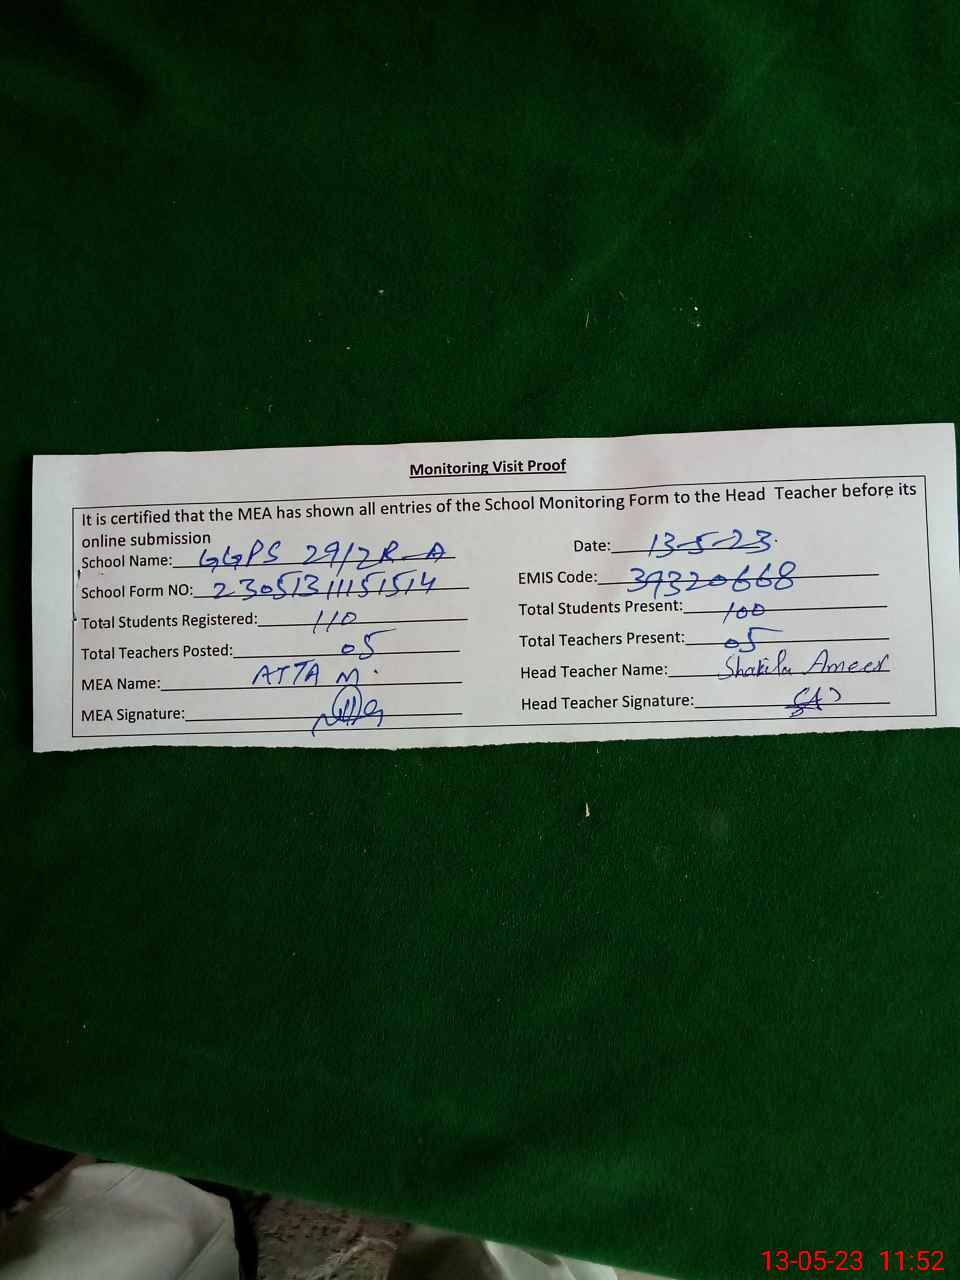 Monitoring Visit Proof
It is certified that the MEA has shown all entries of the School Monitoring Form to the Head Teacher before its
online submission
School Name: GGPS 29/2R-A Date: 13-5-23.
School Form NO: 23051311151514 EMIS Code: 39320668
Total Students Registered: 110 Total Students Present: 100
Total Teachers Posted: 05 Total Teachers Present: 05
MEA Name: ATTA M. Head Teacher Name: Shakila Ameer
MEA Signature: Head Teacher Signature:
13-05-23 11:52